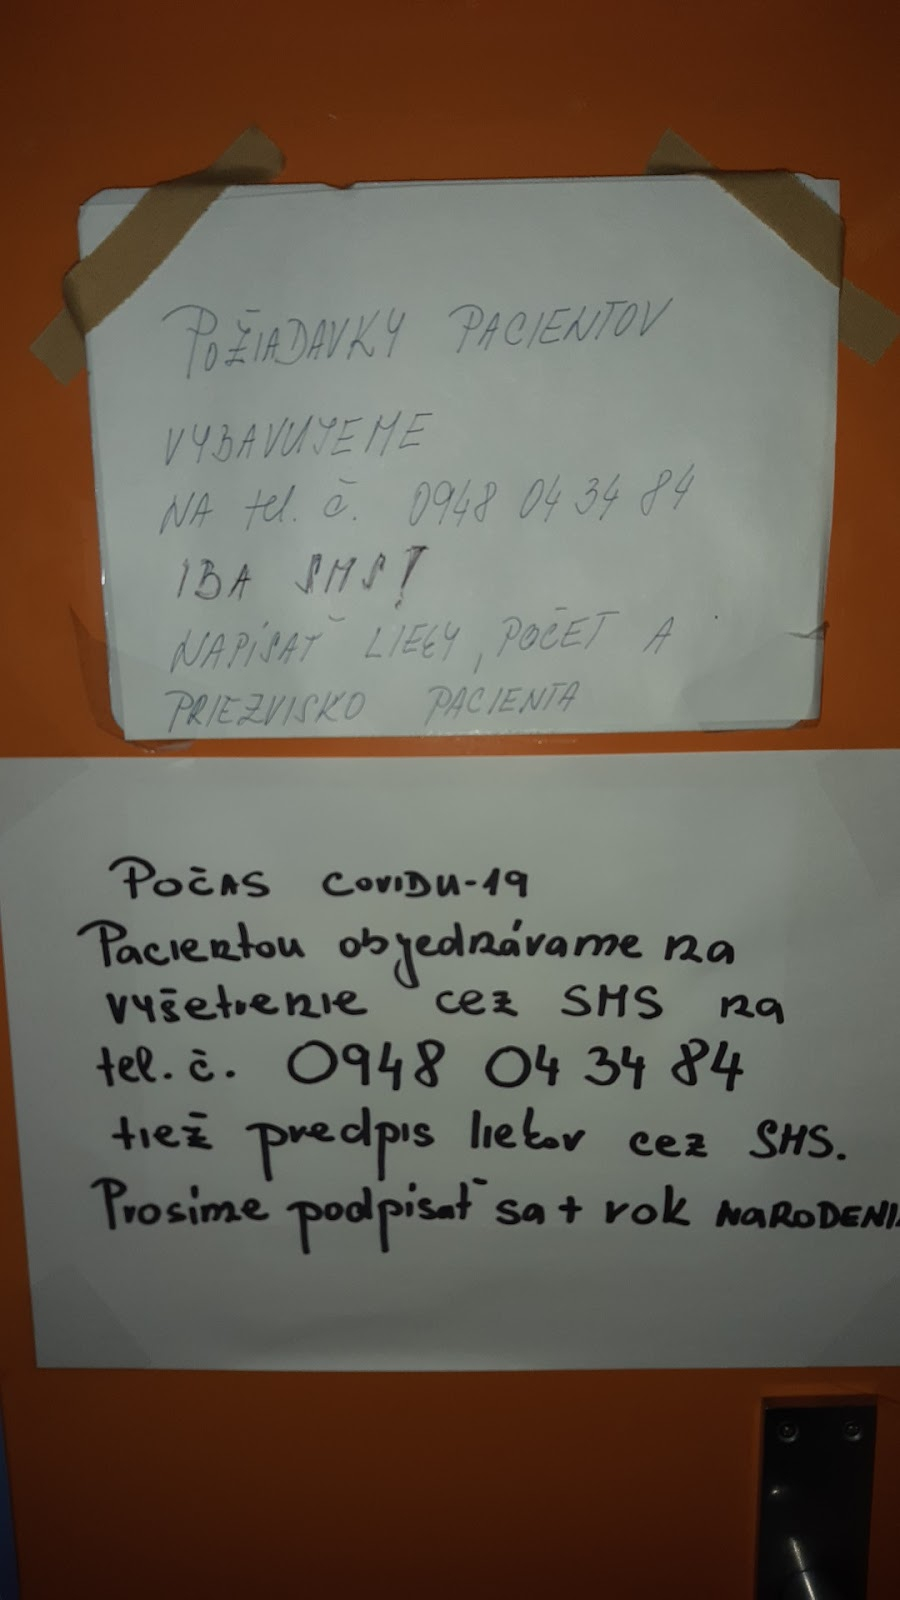 POŽIADAVKY PACIENTOV
VYBAVUJEME
NA tel. č. 0948 04 34 84
IBA SMS!
NAPÍSAŤ LIEKY, POČET A
PRIEZVISKO PACIENTA
POČAS COVIDU-19
Pacientov objednávame na
vyšetrenie cez SMS na
tel. č. 0948 04 34 84
tiež predpis liekov cez SMS.
Prosíme podpísať sa + rok NARODENIA